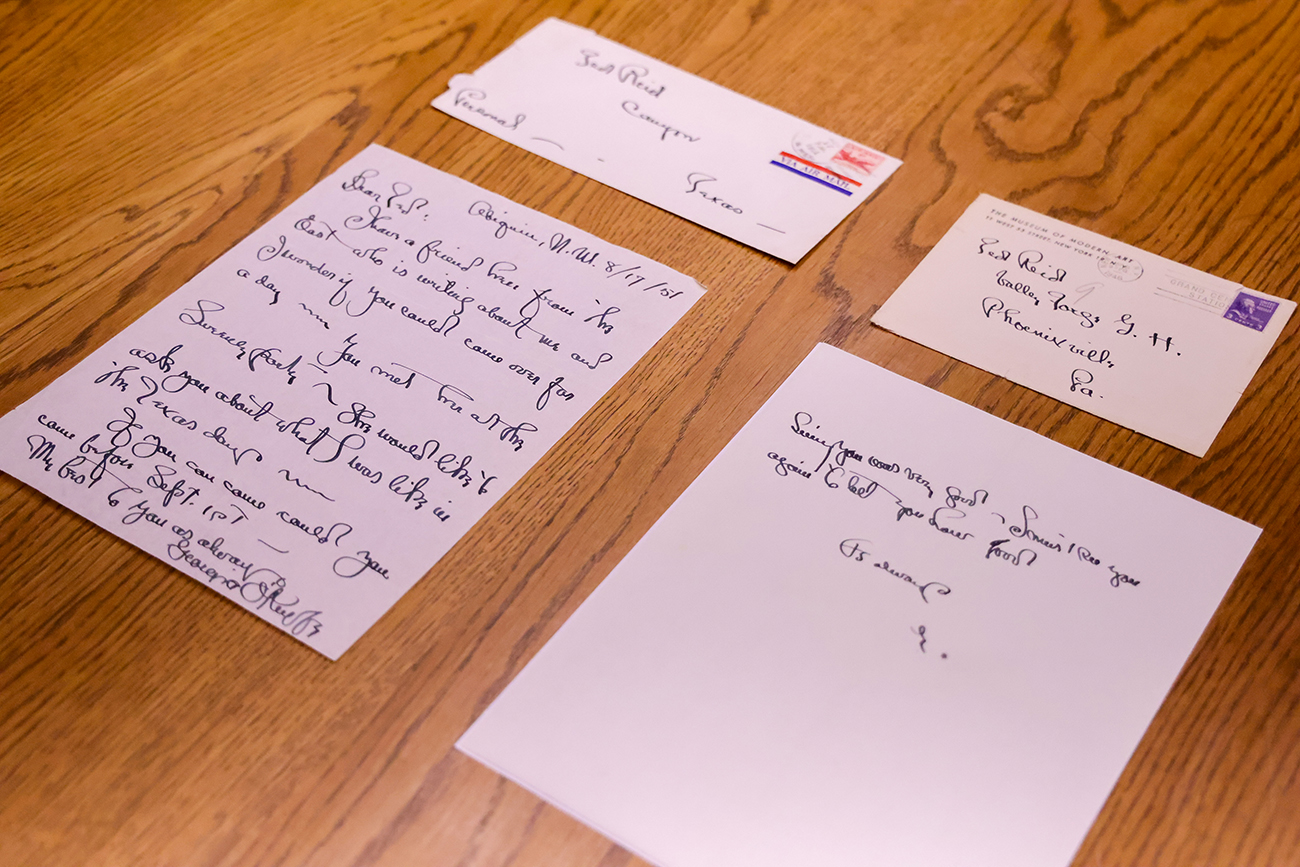 Ted Reid
Canyon
Texas —
Personal —
VIA AIR MAIL
Abiquiu, N.M. 8/17/51
Dear Ted:
I have a friend here from the
East who is writing about me and
I wonder if you could come over for
a day — You met her at the
Party ~ She would like to
ask you about what I was like in
the Texas days —
If you can come could you
come before Sept. 1st —
My best to you as always
Georgia O'Keeffe
THE MUSEUM OF MODERN ART
11 WEST 53 STREET, NEW YORK 19, N.Y.
GRAND CENTRAL
STATION
Ted Reid 9
Valley Forge G. H.
Phoenixville
Pa.
Seeing you was very good ~ I see you
again to bet you have food
As always
G.